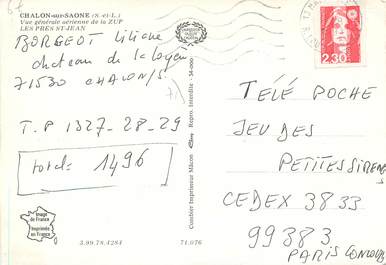 CHALON-sur-SAONE (S.-et-L.)
Vue générale aérienne de la ZUP
LES PRÉS ST-JEAN
BORGEOT Liliane
chateau de la Loyere
71530 CHALON/S
T.P 1327-28-29
total: 1496
Image
de France
Imprimée
en France
3.99.78.4284
71.076
Combier Imprimeur Mâcon
Repro. Interdite - 34-000
2,30
TÉLÉ POCHE
JEU DES
PETITES SIRENE
CEDEX 3833
99383
PARIS CONCOURS